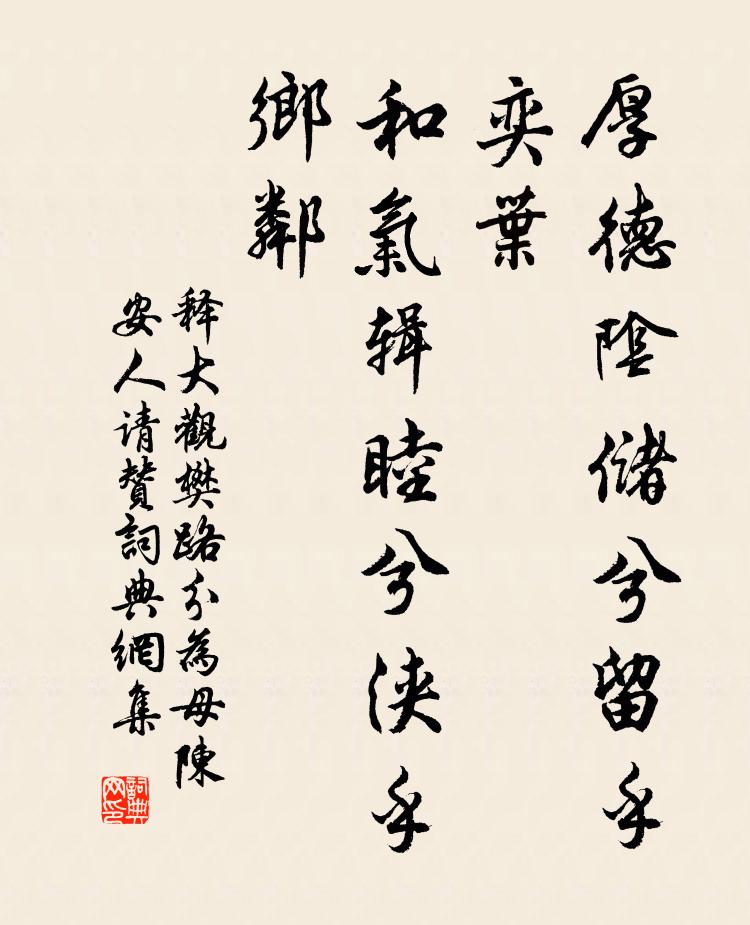 厚德陰儲兮留乎
奕葉
和氣輯睦兮浹乎
鄉鄰
释大觀樊路分為母陳
安人请赞詞典網集
詞典網印